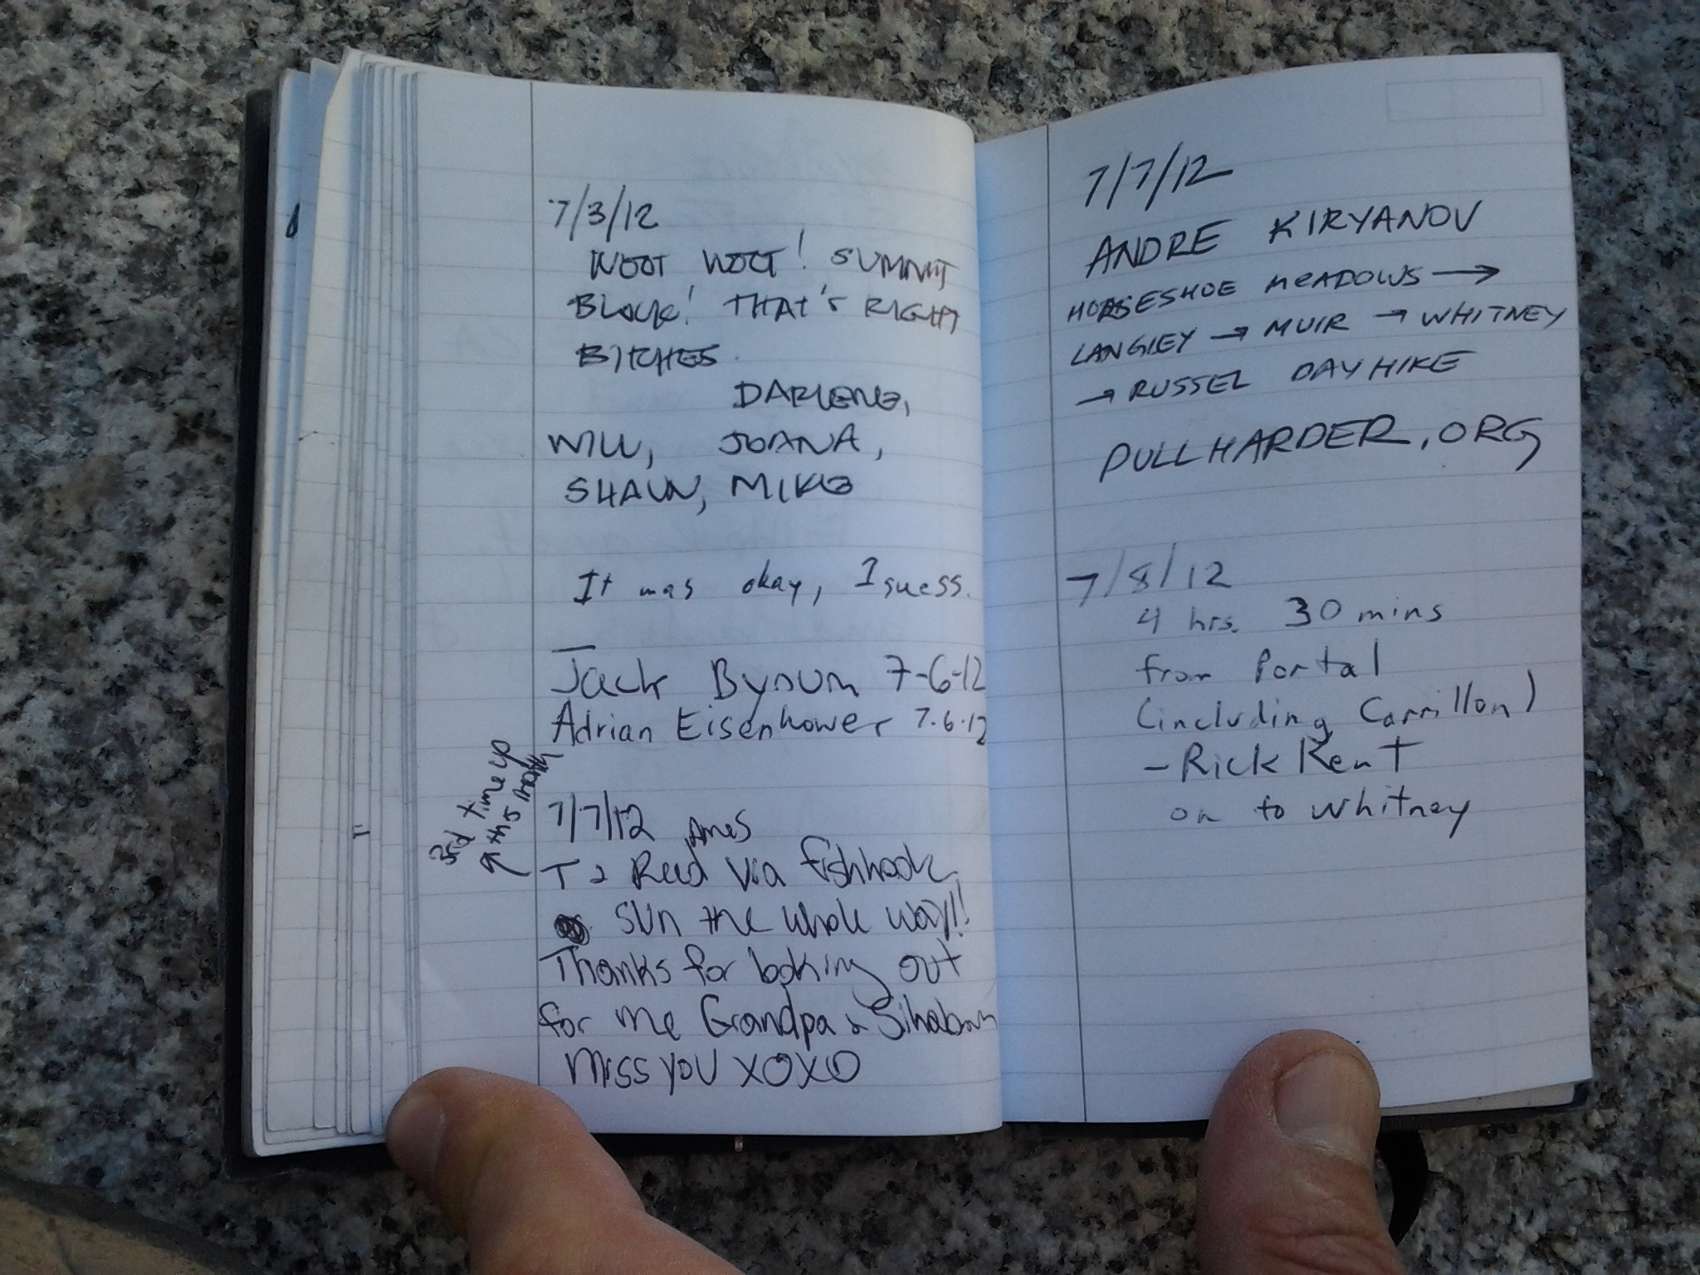 7/3/12
WOOT WOOT! SUMMIT
BLOCK! THAT'S RIGHT
BITCHES.
DARLENE,
WILL, JOANA,
SHAUN, MIKE
It was okay, I guess.
Jack Bynum 7-6-12
Adrian Eisenhower 7.6.12
3rd time up
this month
7/7/12
T Reed via fishhook
sun the whole way!!
Thanks for looking out
for me Grandpa &
Miss you XOXO
7/7/12
ANDRE KIRYANOV
HORSESHOE MEADOWS →
LANGLEY → MUIR → WHITNEY
→ RUSSEL DAYHIKE
PULLHARDER.ORG
7/8/12
4 hrs. 30 mins
from Portal
(including Carrillon)
- Rick Kent
on to Whitney